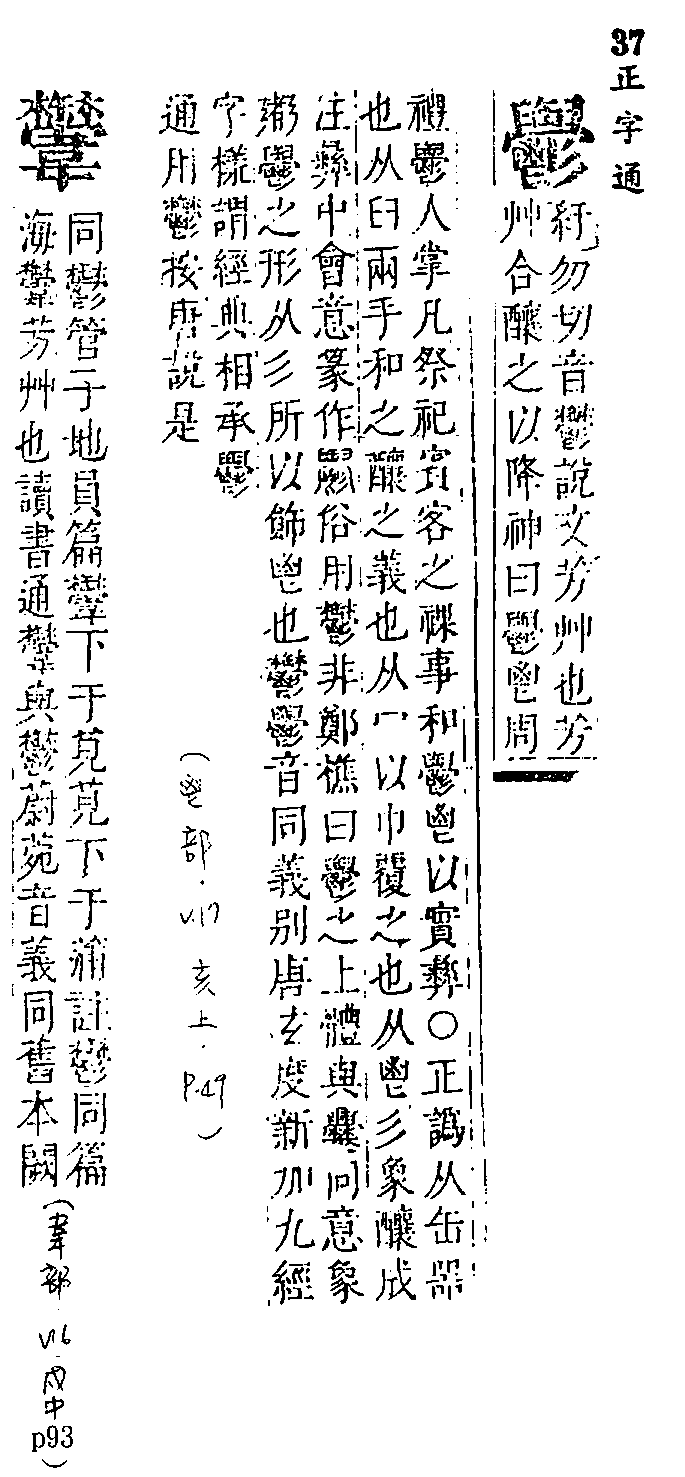 37
正字通
𩰪
紆勿切音鬱說文芳艸也芳
艸合釀之以降神曰𩰪鬯周
禮𩰪人掌凡祭祀賓客之祼事和𩰪鬯以實彝○正譌从缶器
也从臼兩手和之釀之義也从冖以巾覆之也从鬯彡象釀成
注彝中會意篆作𩰪俗用鬱非鄭樵曰𩰪之上體與爨同意象
粥𩰪之形从彡所以飾鬯也鬱𩰪音同義別唐玄度新加九經
字樣謂經典相承𩰪
通用鬱按唐說是
(鬯部．V.17 亥上．P.49)
同鬱管子地員篇下于莧莧下于蒲註鬱同篇
海欎芳艸也讀書通欎與鬱蔚菀音義同舊本闕
(韋部．V.16．戌中 p93)